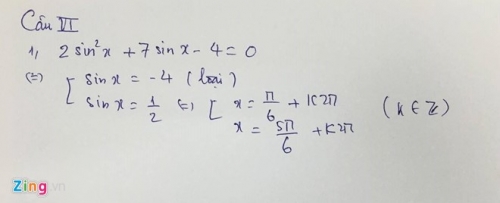 Câu VI
1, 2 sin²x + 7 sin x - 4 = 0
(=) [ sin x = -4 (loại)
sin x = 1/2 (=) [ x = π/6 + k2π
x = 5π/6 + k2π (k ∈ Z)
Zing.vn